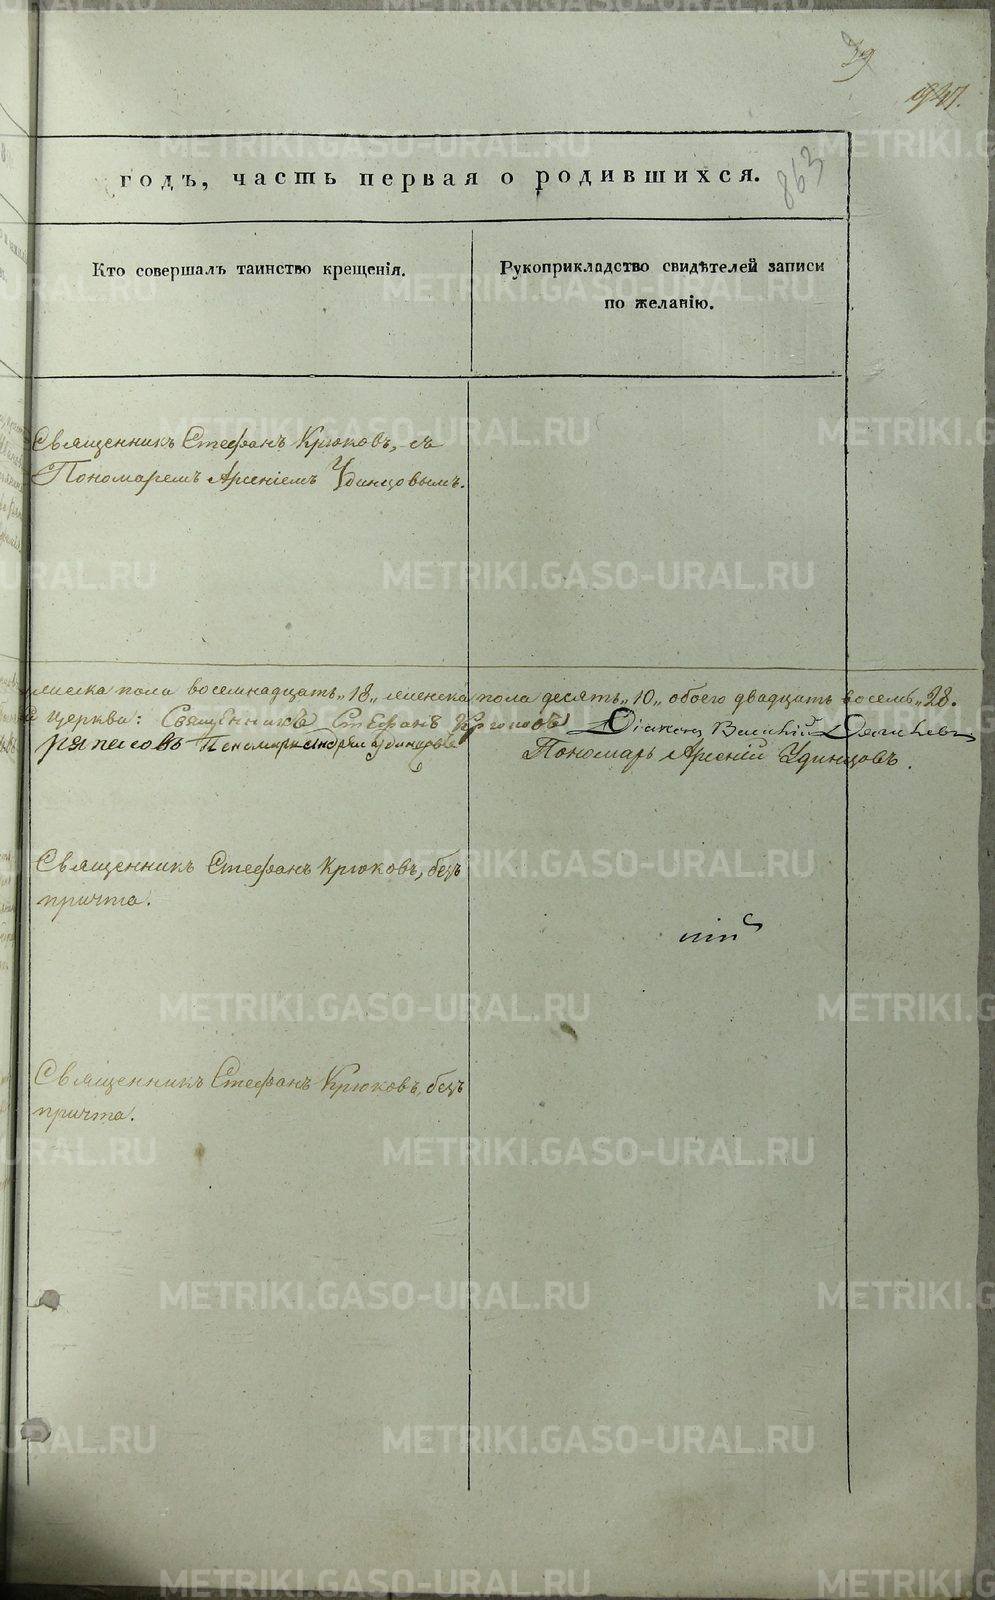 39
947.
863
годъ, часть первая о родившихся.
Кто совершалъ таинство крещенія.
Рукоприкладство свидѣтелей записи
по желанію.
Священникъ Стефанъ Крюковъ, съ
Пономаремъ Арсеніемъ Удинцовымъ.
мужеска пола восемнадцать „18„ женска пола десять „10„ обоего двадцать восемь „28.
церкви: Священникъ Стефанъ Крюковъ Діаконъ Василій
Пономарь Андрей Удинцовъ
Пономарь Арсеній Удинцовъ.
Священникъ Стефанъ Крюковъ, безъ
причта.
Священникъ Стефанъ Крюковъ, безъ
причта.
METRIKI.GASO-URAL.RU